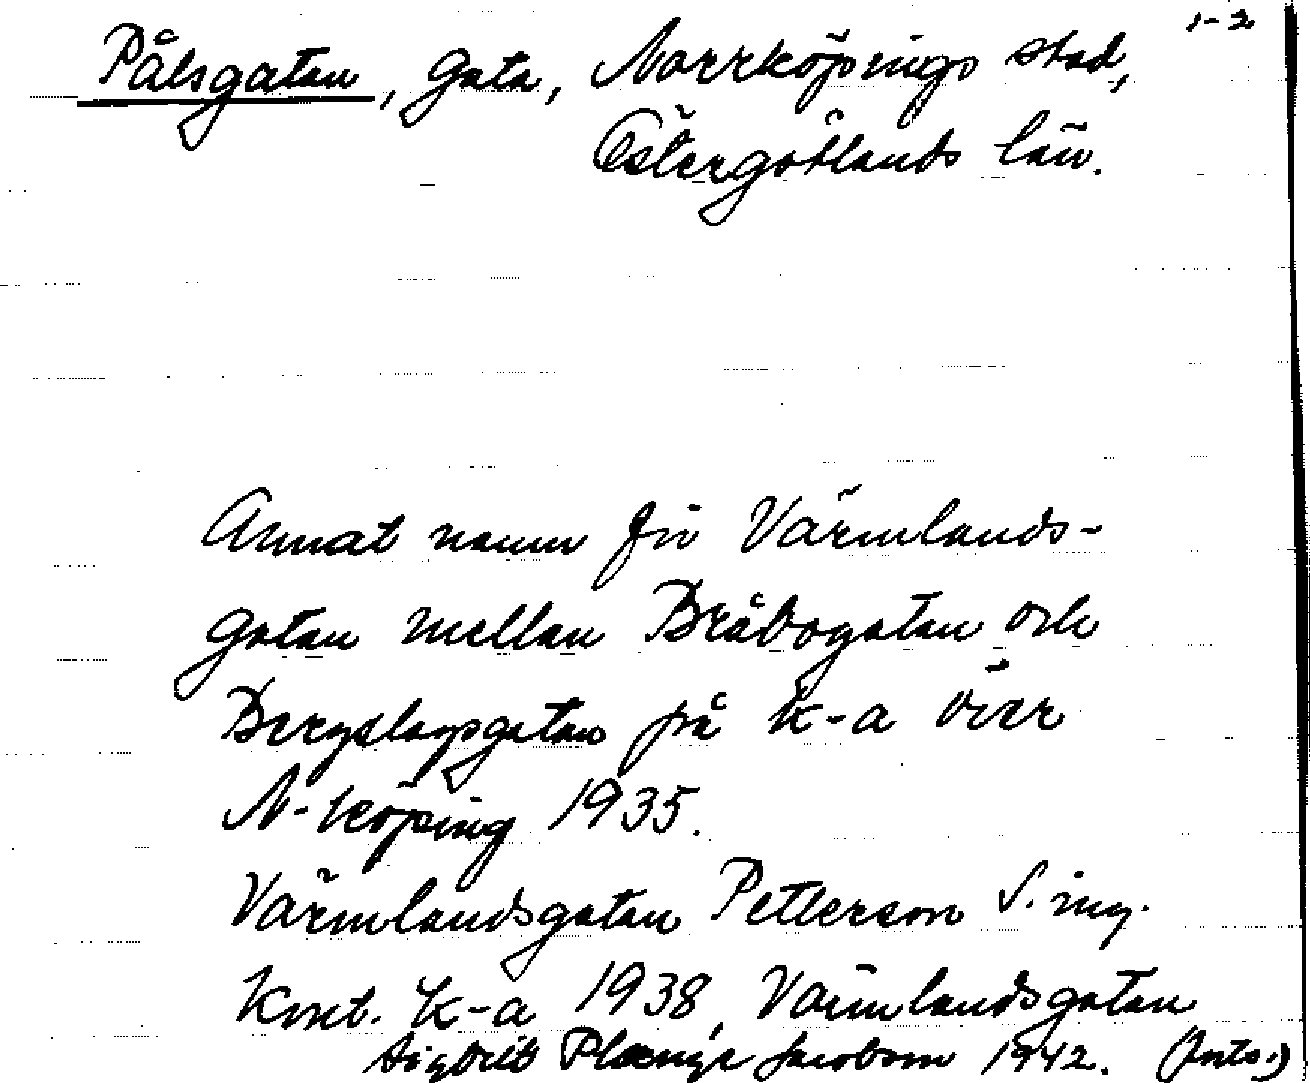 1-2
Pålsgatan, gata, Norrköpings stad,
Östergötlands län.
Annat namn för Värmlands-
gatan mellan Bråbogatan och
Bergslagsgatan på k-a över
N-köping 1935.
Värmlandsgatan Petterson S. ing.
kont. k-a 1938, Värmlandsgatan
Sigbrit Plænge Jacobson 1942. (forts.)